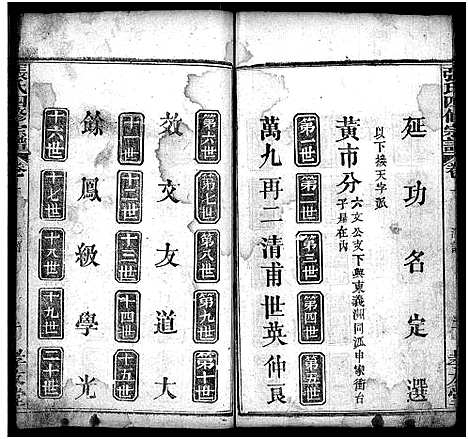 張氏四修宗譜
延功名定選
以下接天字派
黃市分
六文公支下興東義洲同派申家街台
子是在內
第一世 第二世 第三世 第四世 第五世
萬九再二清甫世英仲良
第六世 第七世 第八世 第九世 第十世
效文友道大
十一世 十二世 十三世 十四世 十五世
餘鳳級學光
十六世 十七世 十八世 十九世 二十世
張氏四修宗譜